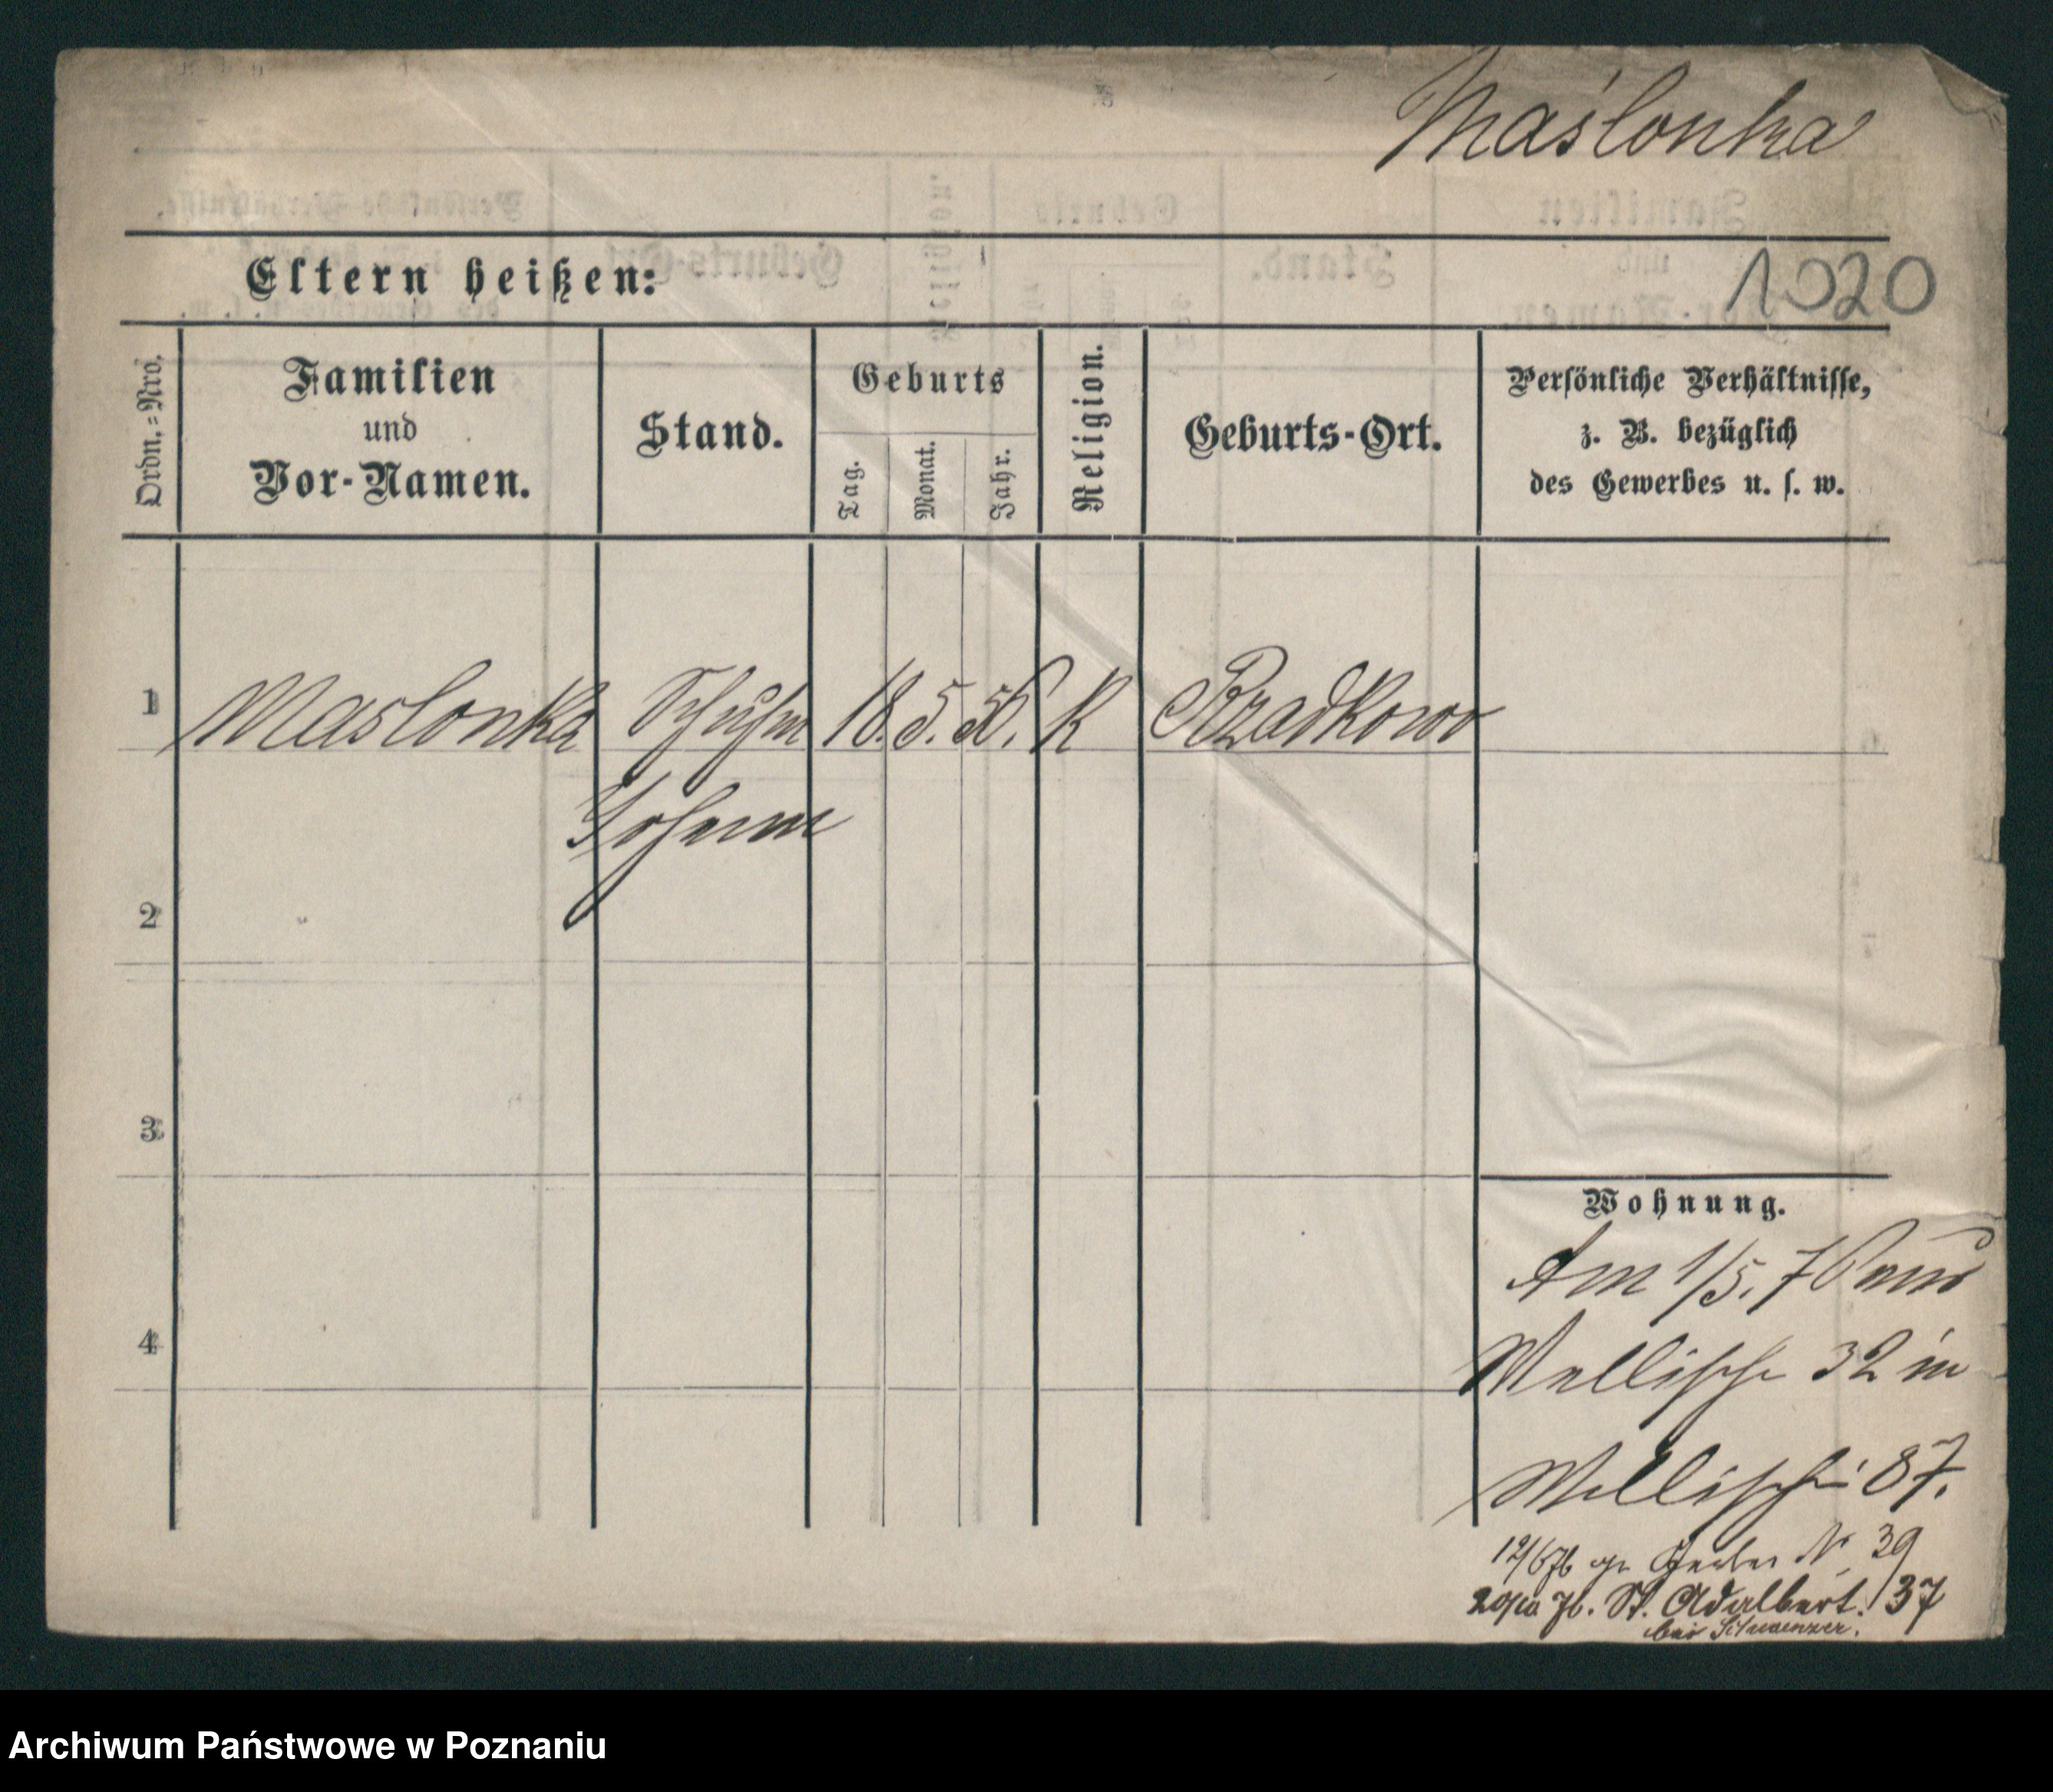 Maślonka
1020
Eltern heißen:
Ordn.=Nro.
Familien
und
Vor-Namen.
Stand.
Geburts
Tag.
Monat.
Jahr.
Religion.
Geburts-Ort.
Persönliche Verhältnisse,
z. B. bezüglich
des Gewerbes u. s. w.
1 Maslonka Schuhm 18. 5. 56. K Rzadkowo
Johann
2
3
4
Wohnung.
Am 1/5. 76 von
Wallische 32 in
Wallischei 87.
12/6 76 gr Gerber N 39
20/10 76. St. Adalbert. 37
bei
Archiwum Państwowe w Poznaniu